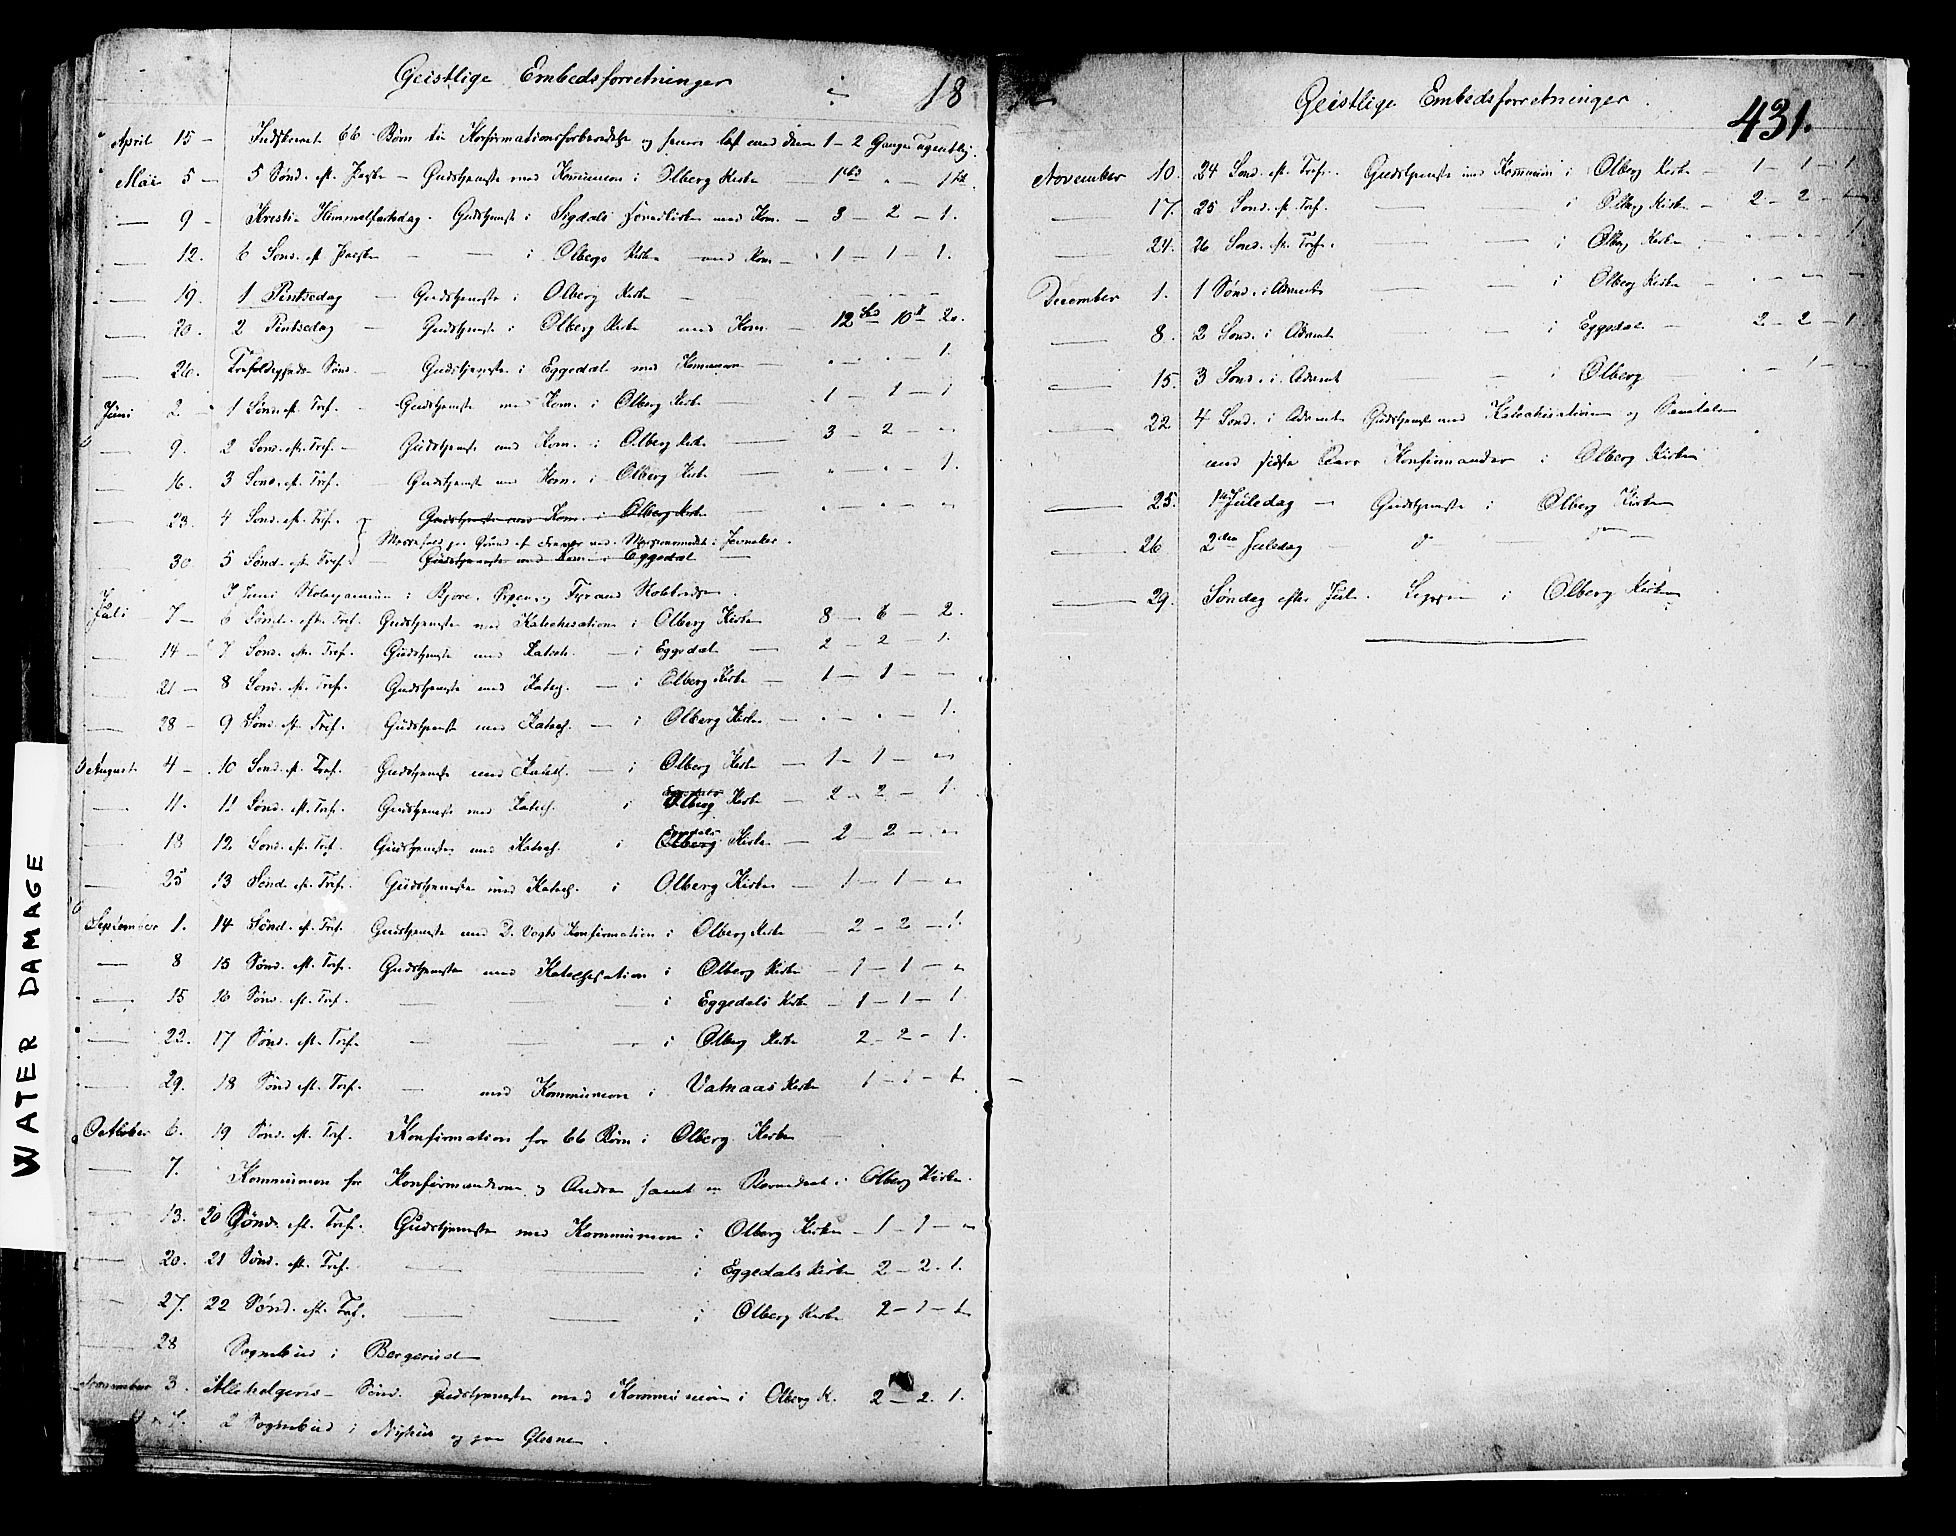 Geistlige Embedsforretninger 18
April 15 - Indskrevet 66 Børn til Konfirmationsforberedelse og senere læst med dem 1 - 2 Gange ugentlig.
Mai 5 - 5 Sønd. eft. Paaske - Gudstjeneste med Kommunion i Olberg Kirke - 1 - " - 1
9 - Kristi Himmelfartsdag. Gudstjeneste i Sigdals Hovedkirke med Kom. - 3 - 2 - 1.
12. 6 Sønd. eft. Paaske - - i Olbergs Kirke med Kom - 1 - 1 - 1.
19. 1 Pintsedag - Gudstjeneste i Olberg Kirke -
20. 2 Pintsedag - Gudstjeneste i Olberg Kirke med Kom. - 12 - 10 - 20.
26. Trefoldigheds Sønd. - Gudstjeneste i Eggedal med Kommunion - " - " - 1.
Juni 2. - 1 Sønd. eft. Tref. - Gudstjeneste med Kom. i Olberg Kirke - 1 - 1 - 1
9. 2 Sønd. eft. Tref. - Gudstjeneste med Kom. i Olberg Kirke - 3 - 2 - "
16. 3 Sønd. eft. Tref. - Gudstjeneste med Kom. i Olberg Kirke - " - " - 1.
23. 4 Sønd. eft. Tref. Gudstjeneste med Kom. i Olberg Kirke " - " - "
Messefald paa Grund af
30 5 Sønd. eft. Tref. - Gudstjeneste med Kom. i Eggedal
I Juni
Juli 7 - 6 Sønd. eft. Tref. Gudstjeneste med Katechisation i Olberg Kirke 8 - 6 - 2.
14 - 7 Sønd. eft. Tref. Gudstjeneste med Katech. - i Eggedal - 2 - 2 - 1.
21 - 8 Sønd. eft. Tref. Gudstjeneste med Katech. - i Olberg Kirke - 1 - 1 - -
28 - 9 Sønd. eft. Tref. Gudstjeneste med Katech. - i Olberg Kirke - " - " - 1.
August 4 - 10 Sønd. eft. Tref. Gudstjeneste med Katech. - i Olberg Kirke - 1 - 1 - "
11. 11 Sønd. eft. Tref. Gudstjeneste med Katech. i Olberg Kirke - 2 - 2 - 1.
18 12 Sønd. eft. Tref. Gudstjeneste med Katech. i Olberg Kirke - 2 - 2 - "
25 13 Sønd. eft. Tref. Gudstjeneste med Katech. i Olberg Kirke - 1 - 1 - "
September 1. 14 Sønd. eft. Tref. Gudstjeneste med D. Vogts Konfirmation i Olberg Kirke 2 - 2 - 1.
8 15 Sønd. eft. Tref. Gudstjeneste med Katechisation i Olberg Kirke - 1 - 1 - "
15 16 Sønd. eft. Tref. - - - i Eggedals Kirke - 1 - 1 - 1
22. 17 Sønd. eft. Tref. - - - i Olberg Kirke 2 - 2 - 1.
29. 18 Sønd. eft. Tref. - med Kommunion i Vatnaas Kirke 1 - 1 - 1
October 6. 19 Sønd. eft. Tref. Konfirmation for 66 Børn i Olberg Kirke
7. Kommunion for Konfirmanderne og Andre samt en Barnedaab i Olberg Kirke.
13. 20 Sønd. eft. Tref. Gudstjeneste med Kommunion i Olberg Kirke - 1 - 1 - "
20. 21 Sønd. eft. Tref. - - i Eggedals Kirke 2 - 2 - 1.
27. 22 Sønd. eft. Tref. - - i Olberg Kirke 2 - 1 - 1
28 Sognebud i Bergerud
November 3. Allehelgens - Sønd. Gudstjeneste med Kommunion i Olberg K. 2 - 2. 1.
2 Sognebud i Nyhus og paa Glesne.
Geistlige Embedsforretninger. 431.
November 10. 24 Sønd. eft. Tref. Gudstjeneste med Kommunion i Olberg Kirke - 1 - 1 - 1
17. 25 Sønd. eft. Tref. - - i Olberg Kirke - 2 - 2 -
24. 26 Sønd. eft. Tref. - - i Olberg Kirke " - " - 1.
December 1. 1 Sønd. i Advent - - i Olberg Kirke - - -
8. 2 Sønd. i Advent - - i Eggedal - 2 - 2 - 1.
15. 3 Sønd. i Advent - - i Olberg - - 1 -
22. 4 Sønd. i Advent Gudstjeneste med Katechisation og Samtale
med sidste Aars Konfirmander i Olberg Kirke
25. 1ste Juledag - Gudstjeneste i Olberg Kirke
26 2den Juledag do - do -
29. Søndag efter Jul. i Olberg Kirke
WATER DAMAGE